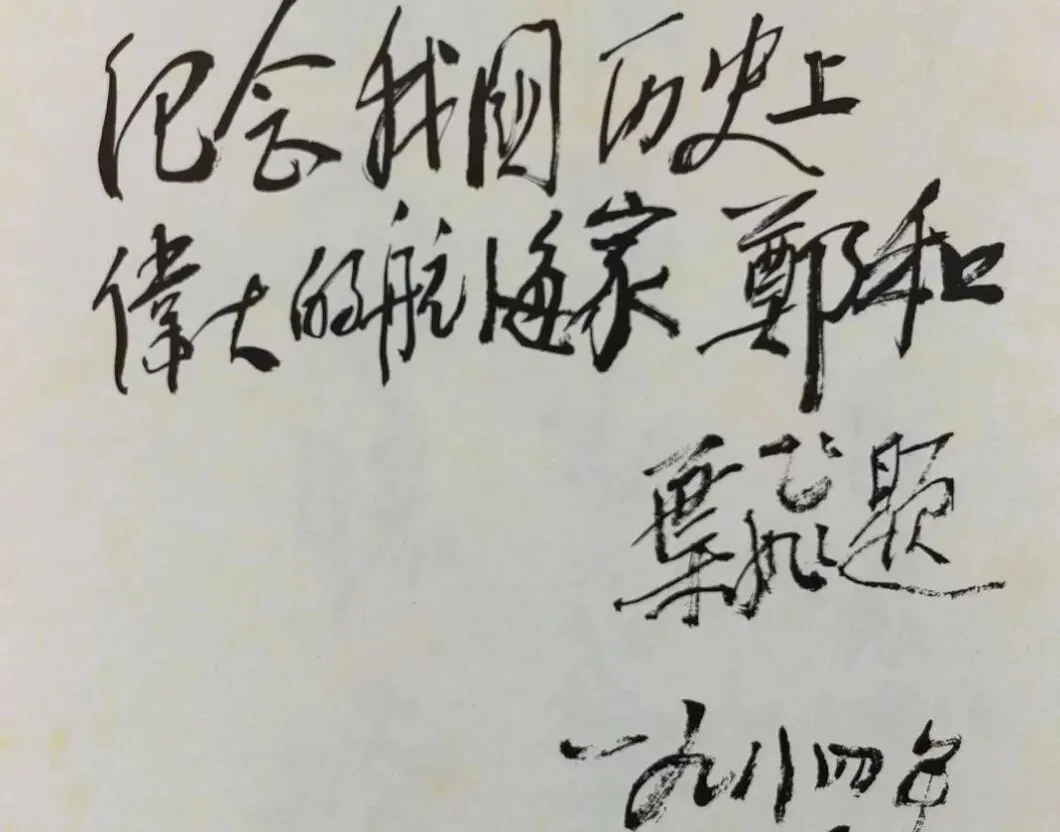 纪念我国历史上
偉大的航海家鄭和
葉飛题
一九八四年